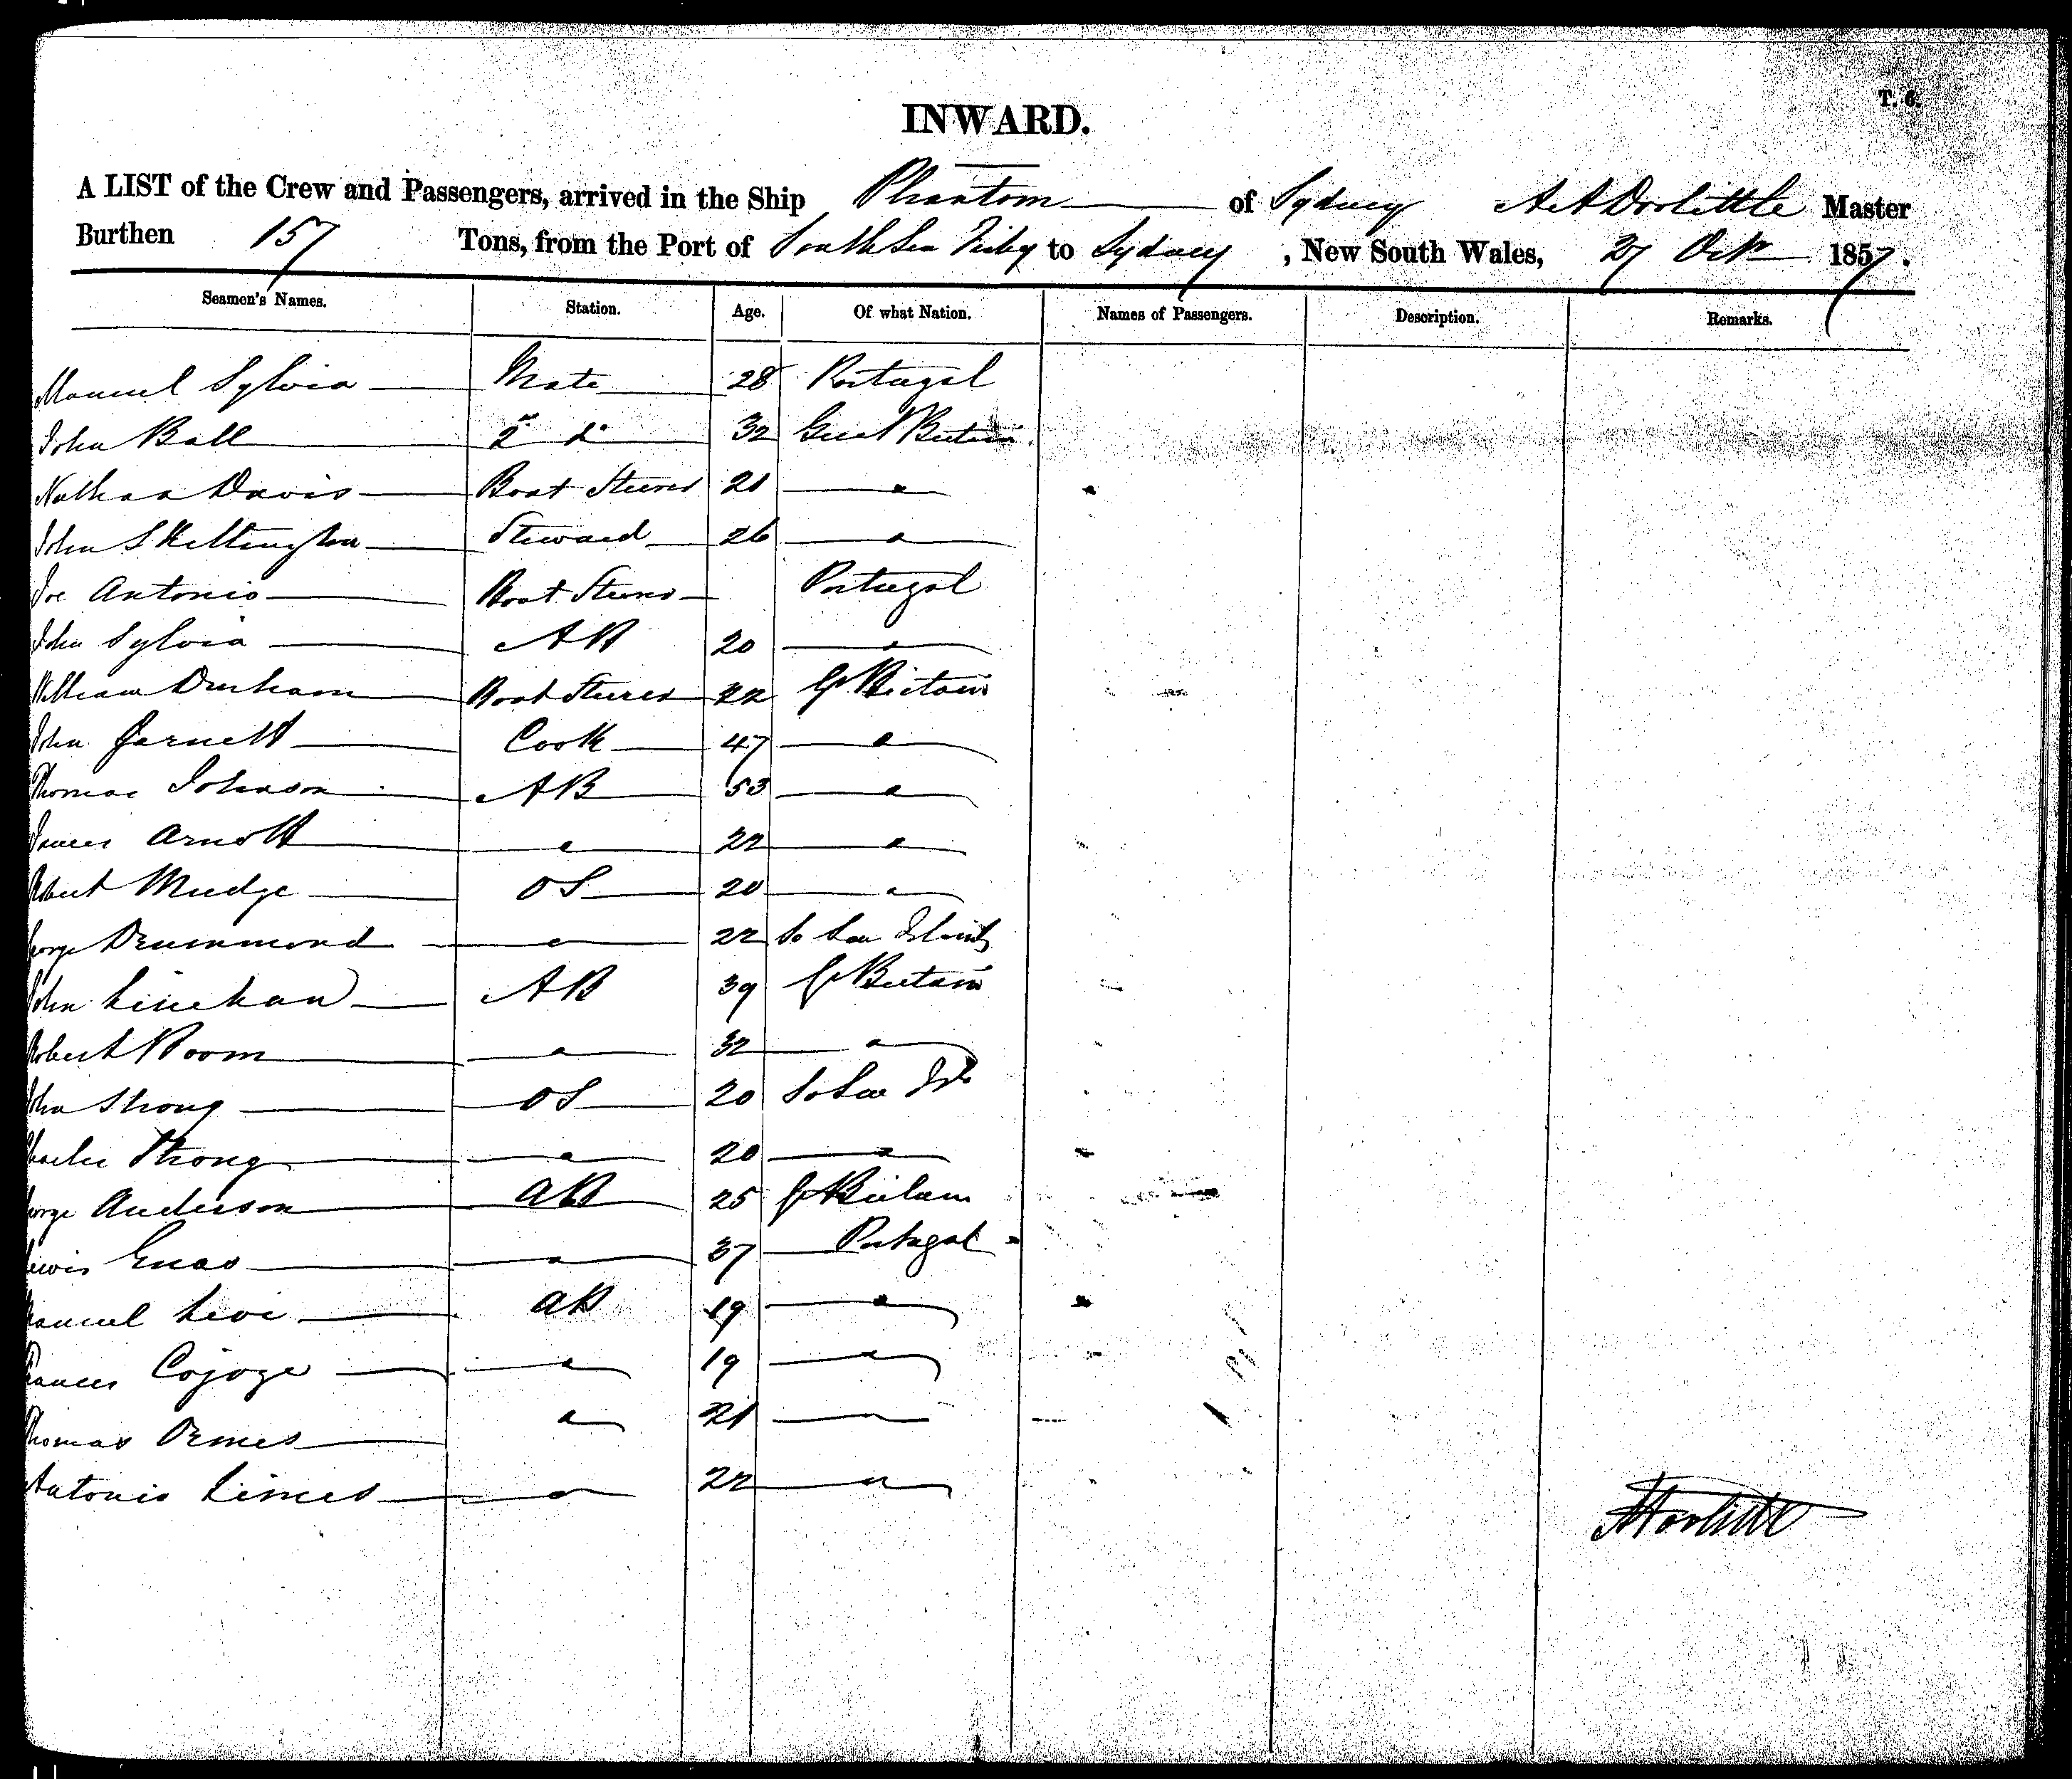 T. 6.
INWARD.
A LIST of the Crew and Passengers, arrived in the Ship Phantom of Sydney A A Doolittle Master
Burthen 157 Tons, from the Port of South Sea to Sydney, New South Wales, 27 Octr 1857.
Seamen's Names. Station. Age. Of what Nation. Names of Passengers. Description. Remarks.
Manuel Sylvia Mate 28 Portugal
John Ball 2nd do 32 Great Britain
Nathan Davis Boat Steerer 21 "
John Skettington Steward 26 "
Joe Antonio Boat Steerer Portugal
John Sylvia AB 20 "
William Durham Boat Steerer 22 Gt Britain
John Jarnett Cook 47 "
Thomas Johnson AB 53 "
James Arnott " 22 "
Robert Mudge OS 20 "
George Drummond " 22 So Sea Islands
John Linehan AB 39 Gt Britain
Robert Room " 32 "
John Strong OS 20 So Sea Isds
Charlie Strong " 20 "
George Anderson AB 25 Gt Britain
Lewis Enas " 37 Portugal
Manuel Levi AB 19 "
Frances Cojoze " 19 "
Thomas Demes " 21 "
Antonio Limes " 22 "
A A Doolittle